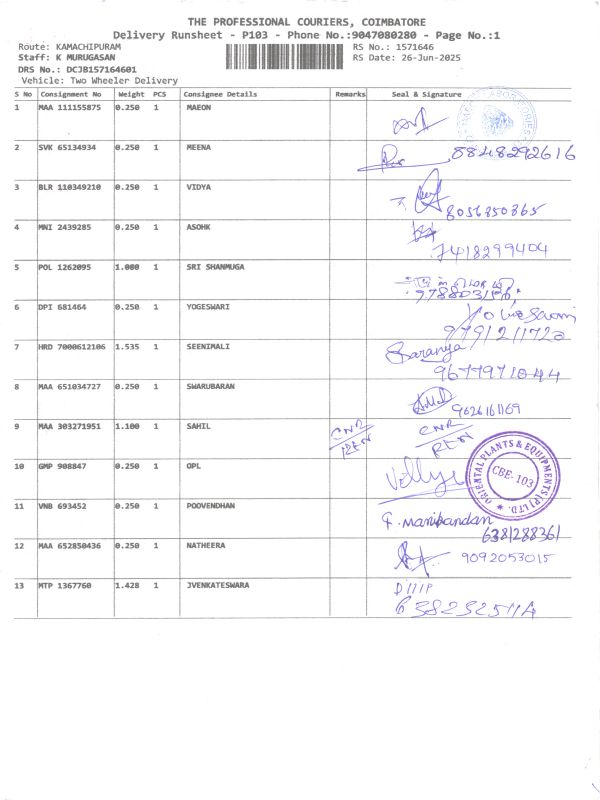 THE PROFESSIONAL COURIERS, COIMBATORE
Delivery Runsheet - P103 - Phone No.:9047080280 - Page No.:1
Route: KAMACHIPURAM RS No.: 1571646
Staff: K MURUGASAN RS Date: 26-Jun-2025
DRS No.: DCJB157164601
Vehicle: Two Wheeler Delivery
S No Consignment No Weight PCS Consignee Details Remarks Seal & Signature
1 MAA 111155875 0.250 1 MAEON
2 SVK 65134934 0.250 1 MEENA 8848292616
3 BLR 110349210 0.250 1 VIDYA 8056850865
4 MNI 2439285 0.250 1 ASOHK 7418299404
5 POL 1262095 1.000 1 SRI SHANMUGA
6 DPI 681464 0.250 1 YOGESWARI
7 HRD 7000612106 1.535 1 SEENIMALI Saranya
9677971044
8 MAA 651034727 0.250 1 SWARUBARAN 9626161169
9 MAA 303271951 1.100 1 SAHIL CNR CNR
10 GMP 908847 0.250 1 OPL ORIENTAL PLANTS & EQUIPMENTS (P) LTD. CBE-103
11 VNB 693452 0.250 1 POOVENDHAN Manikandan
6381288361
12 MAA 652850436 0.250 1 NATHEERA 9092053015
13 MTP 1367760 1.428 1 JVENKATESWARA